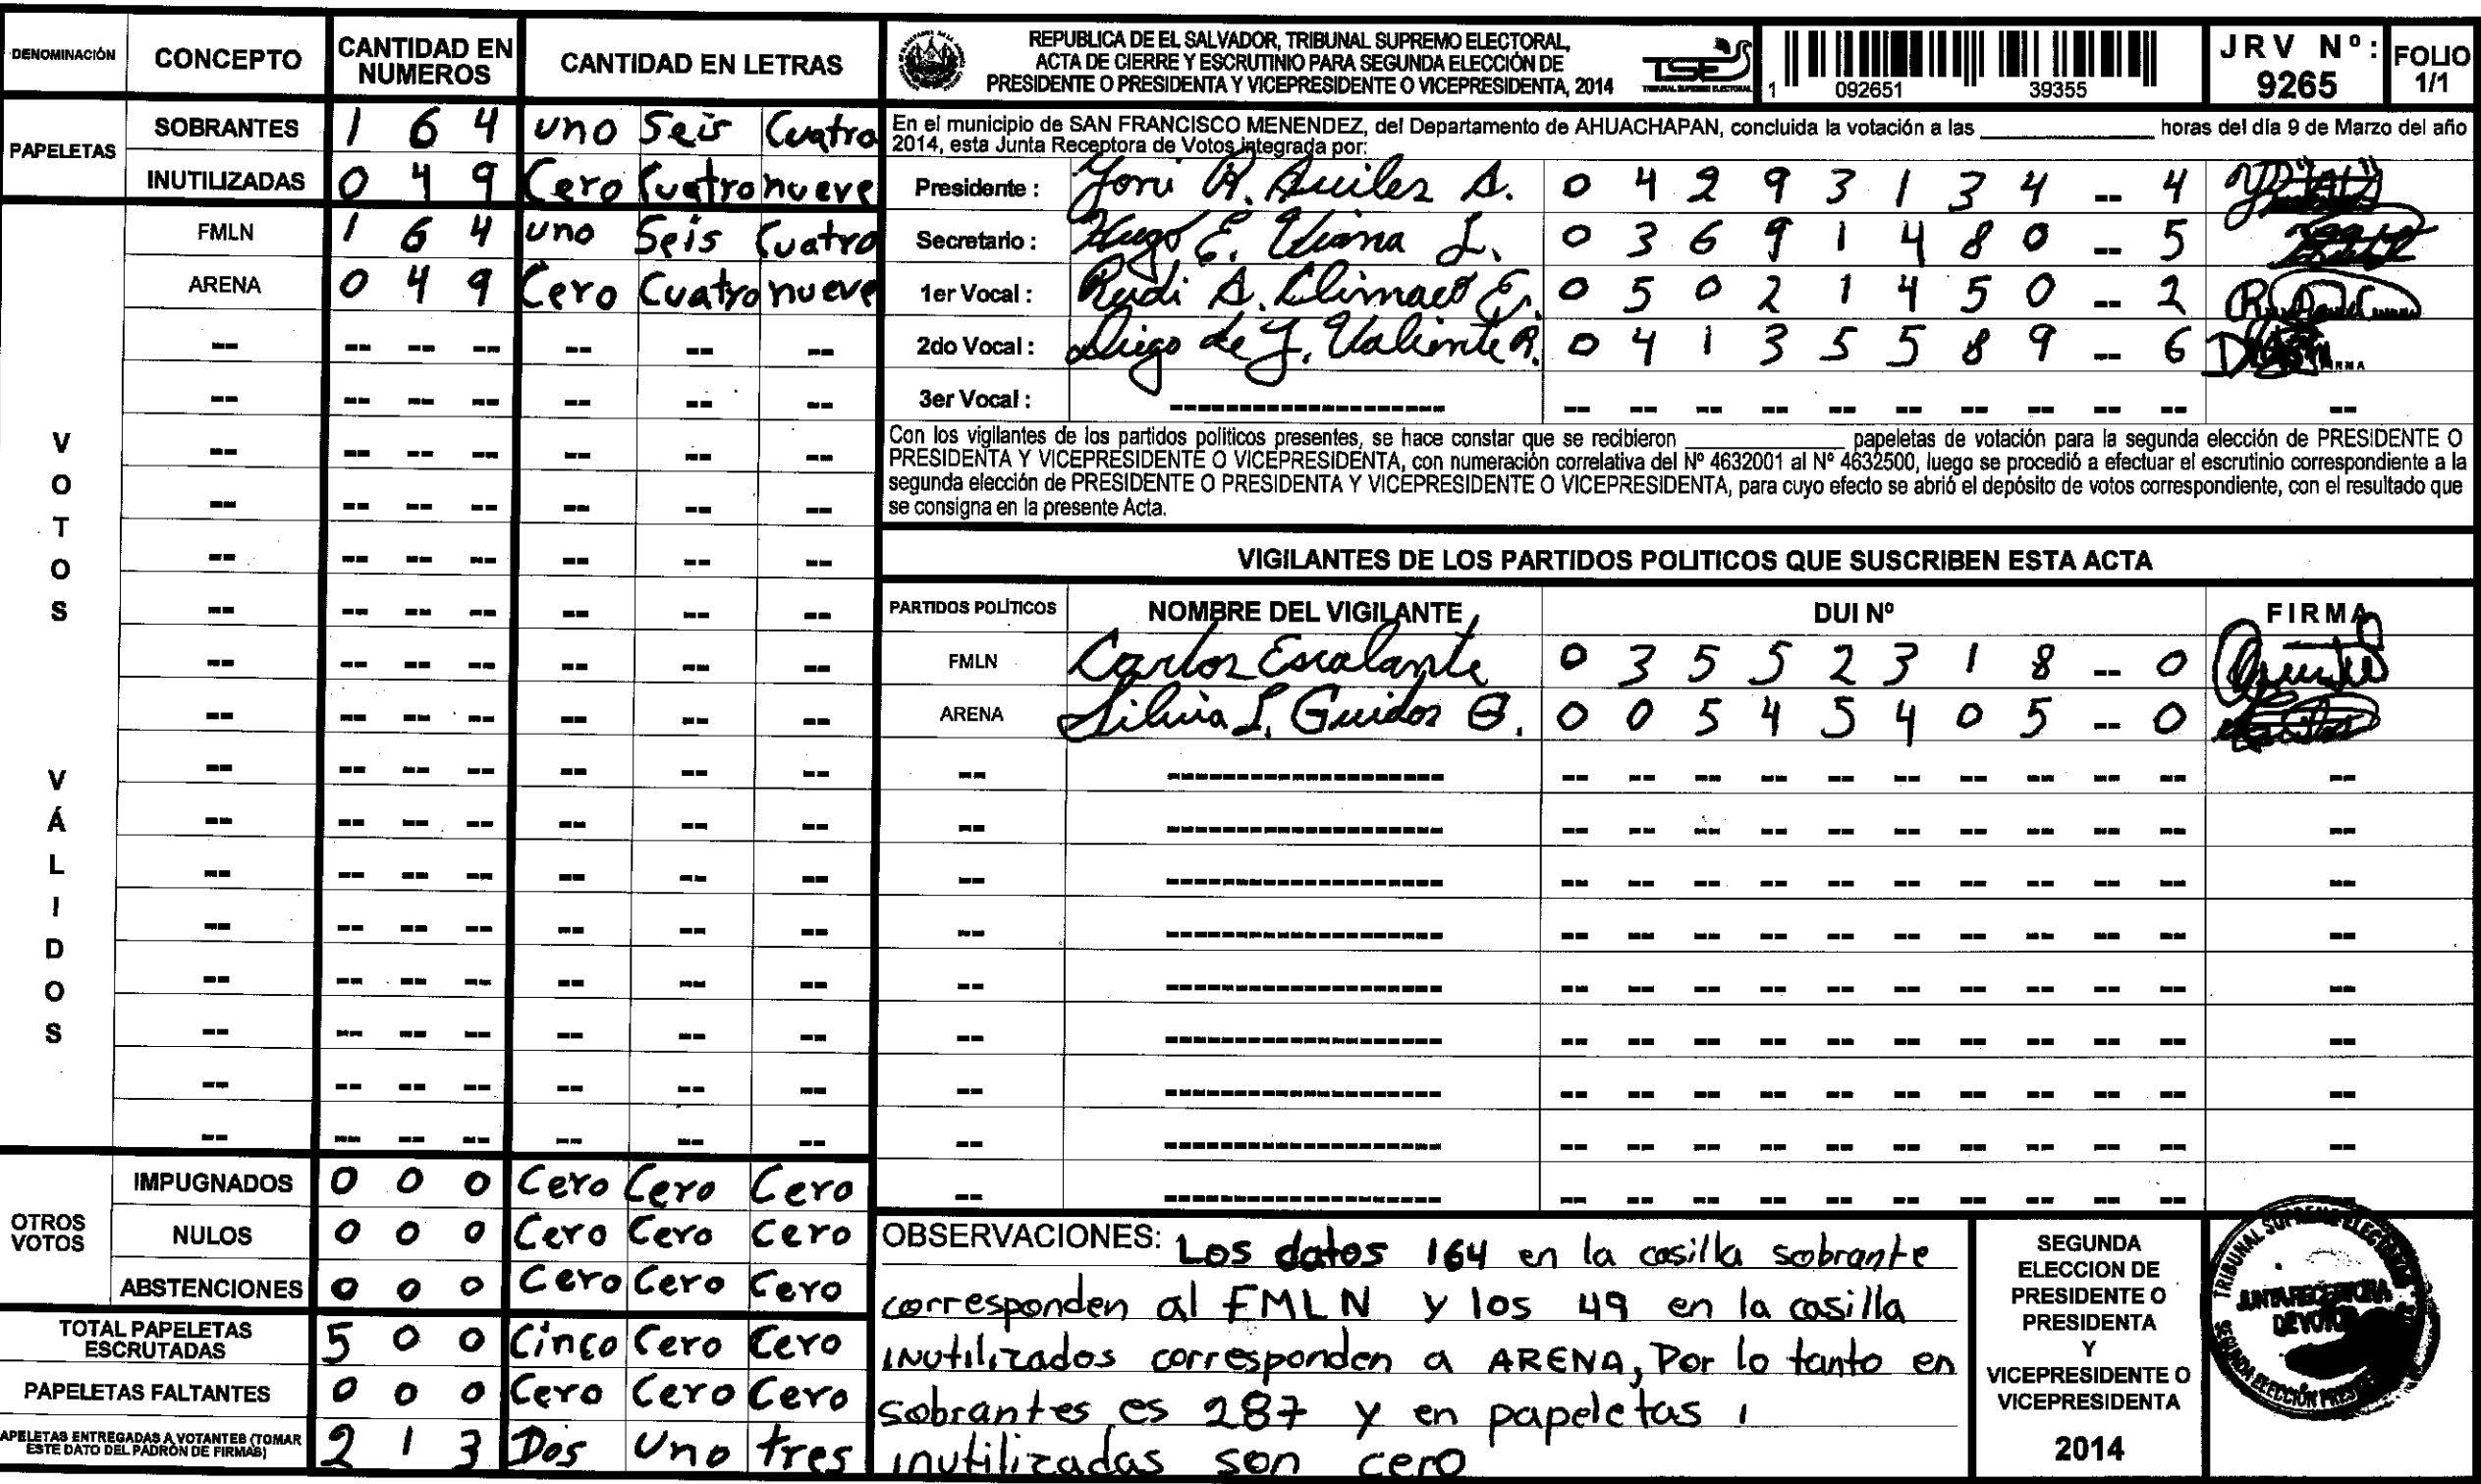 DENOMINACIÓN CONCEPTO CANTIDAD EN NUMEROS CANTIDAD EN LETRAS
PAPELETAS
SOBRANTES 1 6 4 uno Seis Cuatro
INUTILIZADAS 0 4 9 Cero Cuatro nueve
VOTOS VÁLIDOS
FMLN 1 6 4 uno Seis Cuatro
ARENA 0 4 9 Cero Cuatro nueve
OTROS VOTOS
IMPUGNADOS 0 0 0 Cero Cero Cero
NULOS 0 0 0 Cero Cero Cero
ABSTENCIONES 0 0 0 Cero Cero Cero
TOTAL PAPELETAS ESCRUTADAS 5 0 0 Cinco Cero Cero
PAPELETAS FALTANTES 0 0 0 Cero Cero Cero
APELETAS ENTREGADAS A VOTANTES (TOMAR ESTE DATO DEL PADRÓN DE FIRMAS) 2 1 3 Dos Uno tres
REPUBLICA DE EL SALVADOR, TRIBUNAL SUPREMO ELECTORAL,
ACTA DE CIERRE Y ESCRUTINIO PARA SEGUNDA ELECCIÓN DE
PRESIDENTE O PRESIDENTA Y VICEPRESIDENTE O VICEPRESIDENTA, 2014
TSE
TRIBUNAL SUPREMO ELECTORAL
1 092651 39355
JRV Nº: 9265
FOLIO 1/1
En el municipio de SAN FRANCISCO MENENDEZ, del Departamento de AHUACHAPAN, concluida la votación a las ____ horas del día 9 de Marzo del año
2014, esta Junta Receptora de Votos integrada por:
Presidente : Yoni R. Aviles A. 0 4 2 9 3 1 3 4 -- 4
Secretario : Hugo E. Viana L. 0 3 6 9 1 4 8 0 -- 5
1er Vocal : Rudi A. Climaco E. 0 5 0 2 1 4 5 0 -- 2
2do Vocal : Diego de J. Valiente R. 0 4 1 3 5 5 8 9 -- 6
3er Vocal :
Con los vigilantes de los partidos políticos presentes, se hace constar que se recibieron ____ papeletas de votación para la segunda elección de PRESIDENTE O
PRESIDENTA Y VICEPRESIDENTE O VICEPRESIDENTA, con numeración correlativa del Nº 4632001 al Nº 4632500, luego se procedió a efectuar el escrutinio correspondiente a la
segunda elección de PRESIDENTE O PRESIDENTA Y VICEPRESIDENTE O VICEPRESIDENTA, para cuyo efecto se abrió el depósito de votos correspondiente, con el resultado que
se consigna en la presente Acta.
VIGILANTES DE LOS PARTIDOS POLITICOS QUE SUSCRIBEN ESTA ACTA
PARTIDOS POLÍTICOS NOMBRE DEL VIGILANTE DUI Nº FIRMA
FMLN Carlos Escalante 0 3 5 5 2 3 1 8 -- 0
ARENA Silvia L. Guidos G. 0 0 5 4 5 4 0 5 -- 0
OBSERVACIONES: Los datos 164 en la casilla sobrante
corresponden al FMLN y los 49 en la casilla
inutilizados corresponden a ARENA, Por lo tanto en
sobrantes es 287 y en papeletas
inutilizadas son cero
SEGUNDA
ELECCION DE
PRESIDENTE O
PRESIDENTA
Y
VICEPRESIDENTE O
VICEPRESIDENTA
2014
TRIBUNAL SUPREMO ELECTORAL
JUNTA RECEPTORA
DE VOTOS